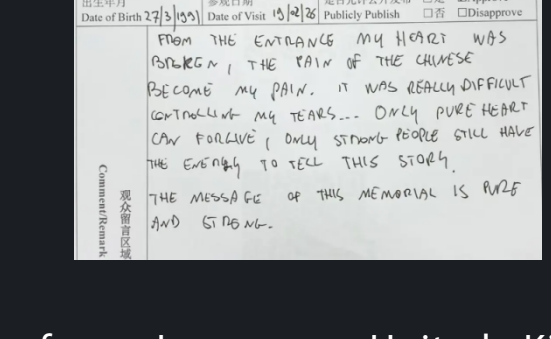 Date of Birth 27/3/1991 Date of Visit 19/02/26 Publicly Publish □否 □Disapprove
FROM THE ENTRANCE MY HEART WAS
BROKEN, THE PAIN OF THE CHINESE
BECOME MY PAIN. IT WAS REALLY DIFFICULT
CONTROLLING MY TEARS... ONLY PURE HEART
CAN FORGIVE, ONLY STRONG PEOPLE STILL HAVE
THE ENERGY TO TELL THIS STORY.
THE MESSAGE OF THIS MEMORIAL IS PURE
AND STRONG.
观众留言区域
Comment/Remark